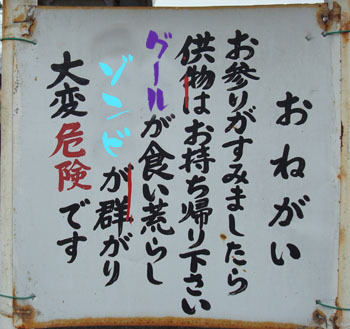 おねがい
お参りがすみましたら
供物はお持ち帰り下さい
グールが食い荒らし
ゾンビが群がり
大変危険です